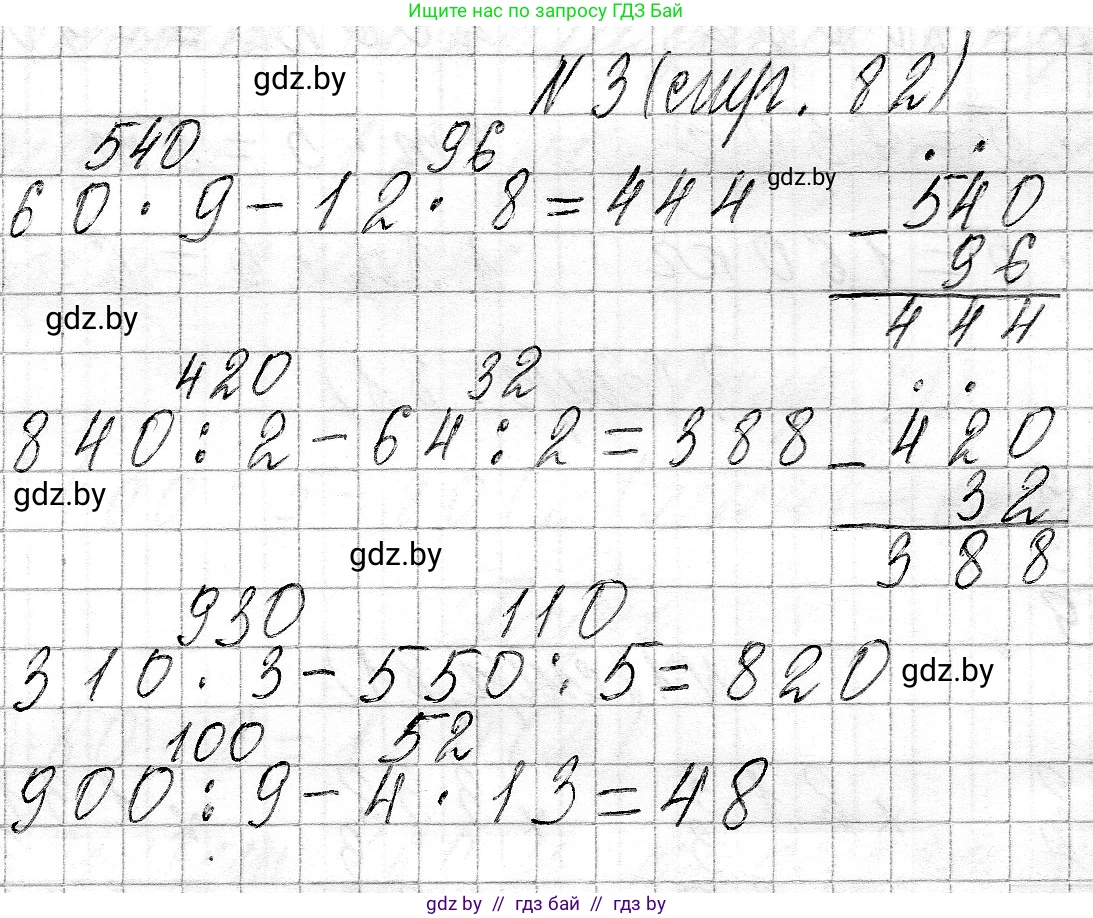 Ищите нас по запросу ГДЗ Бай
gdz.by № 3 (стр. 82)
540 96
60 · 9 - 12 · 8 = 444 gdz.by
- 540
96
444
gdz.by
420 32
840 : 2 - 64 : 2 = 388
- 420
32
388
gdz.by
gdz.by
930 110
310 · 3 - 550 : 5 = 820 gdz.by
100 52
900 : 9 - 4 · 13 = 48
gdz.by // гдз бай // гдз by